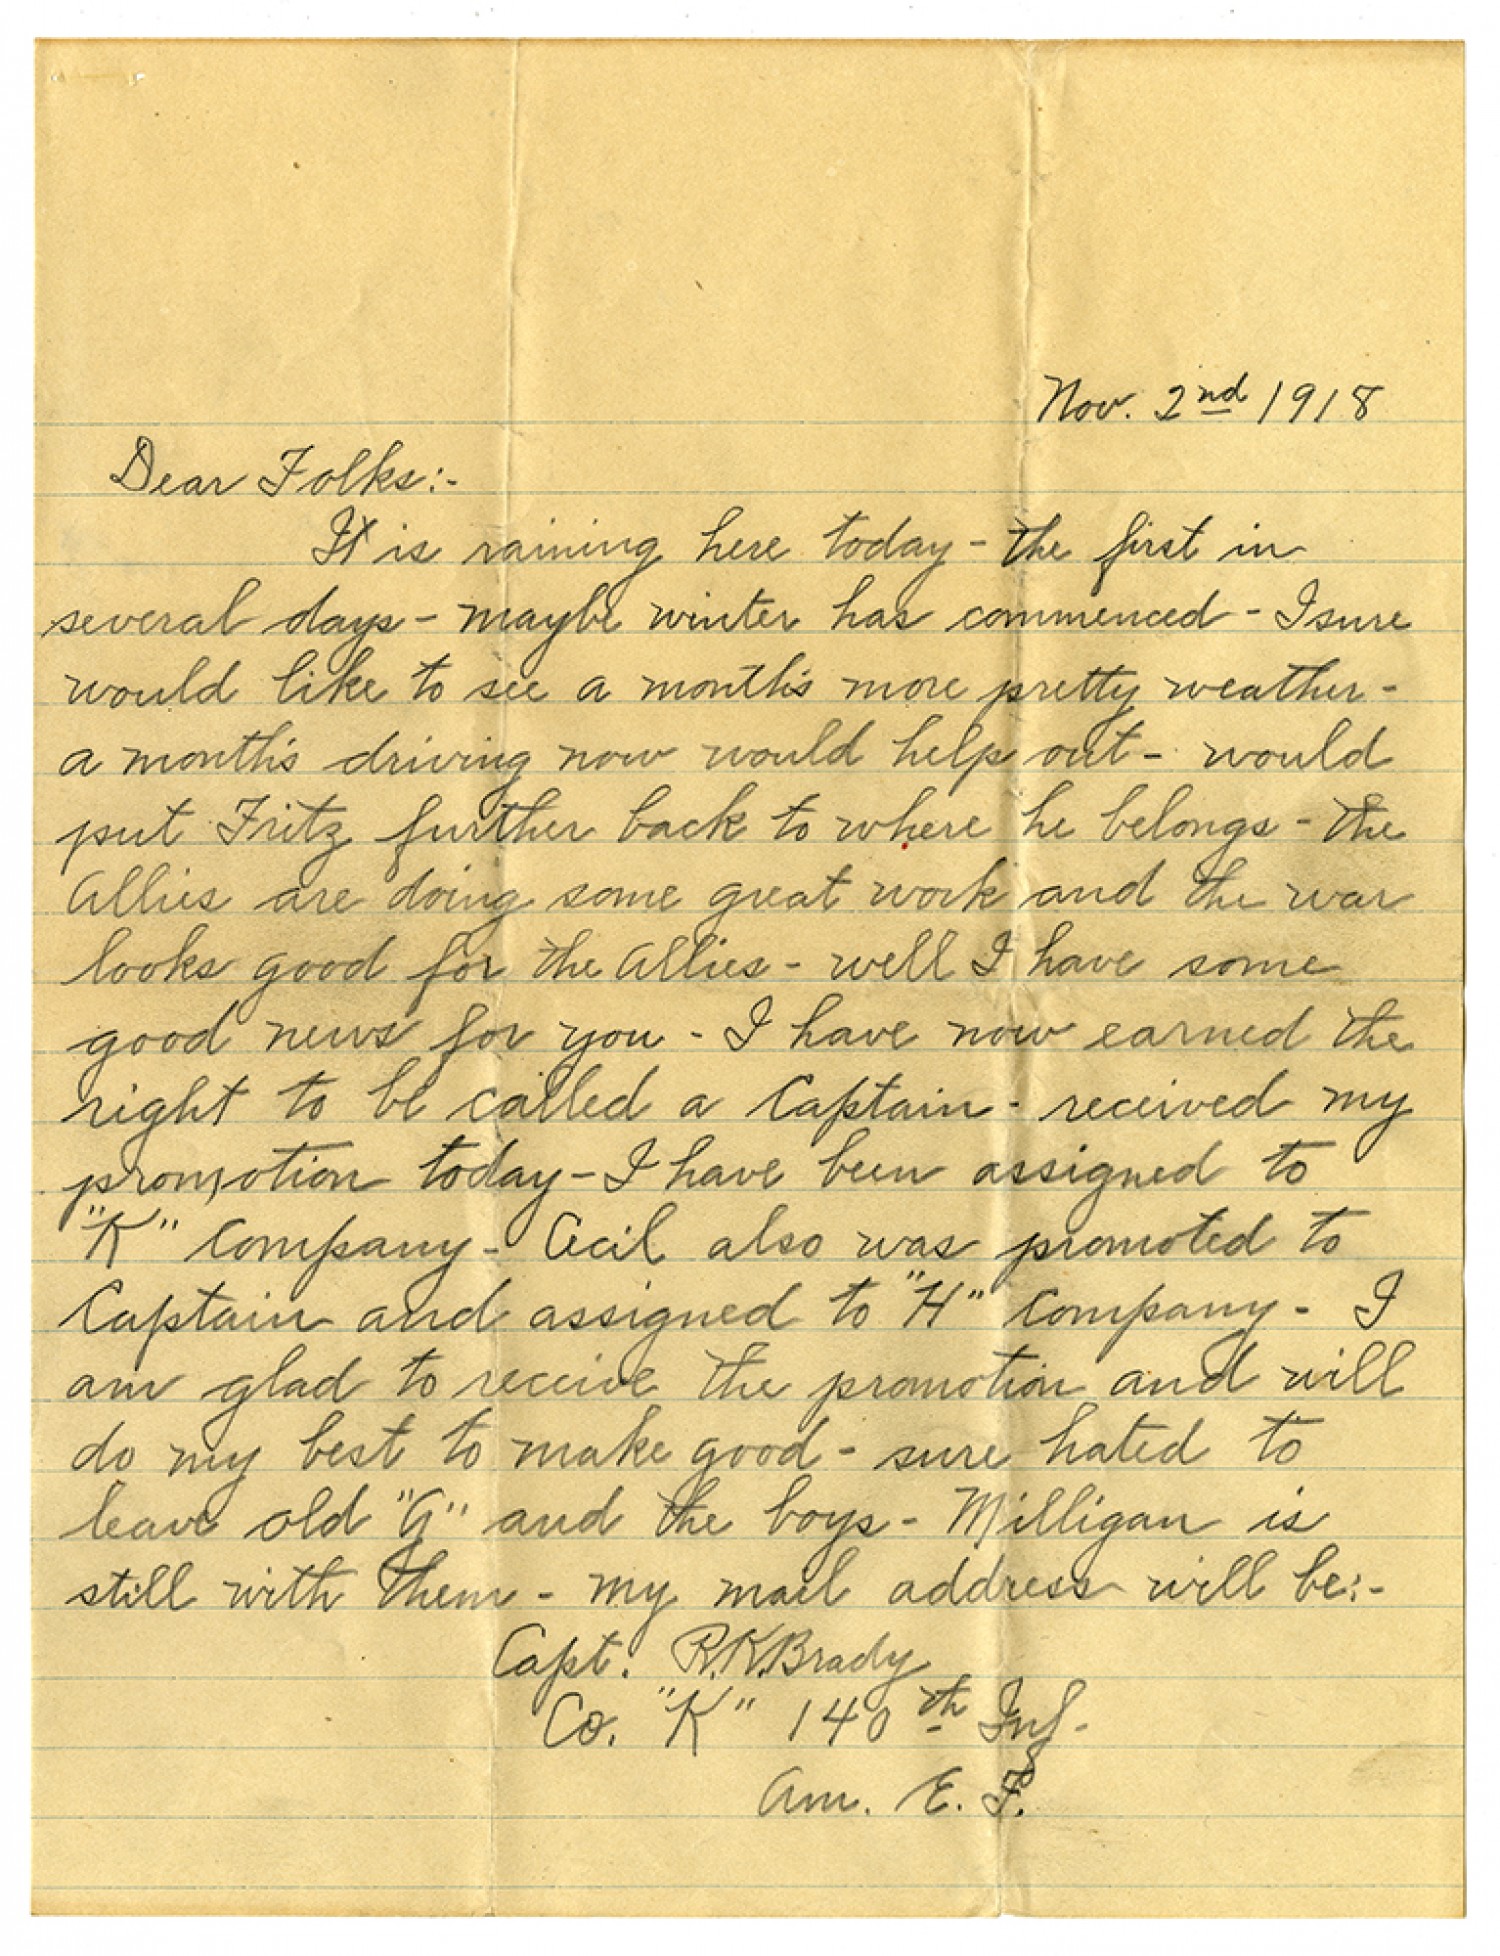 Nov. 2nd 1918
Dear Folks:-
It is raining here today - the first in
several days - maybe winter has commenced - I sure
would like to see a month's more pretty weather -
a month's driving now would help out - would
put Fritz further back to where he belongs - the
Allies are doing some great work and the war
looks good for the Allies - well I have some
good news for you - I have now earned the
right to be called a Captain - received my
promotion today - I have been assigned to
"K" Company - Cecil also was promoted to
Captain and assigned to "H" Company - I
am glad to receive the promotion and will
do my best to make good - sure hated to
leave old "G" and the boys - Milligan is
still with them - my mail address will be:-
Capt. R.K. Brady
Co. "K" 140th Inf.
Am. E. F.